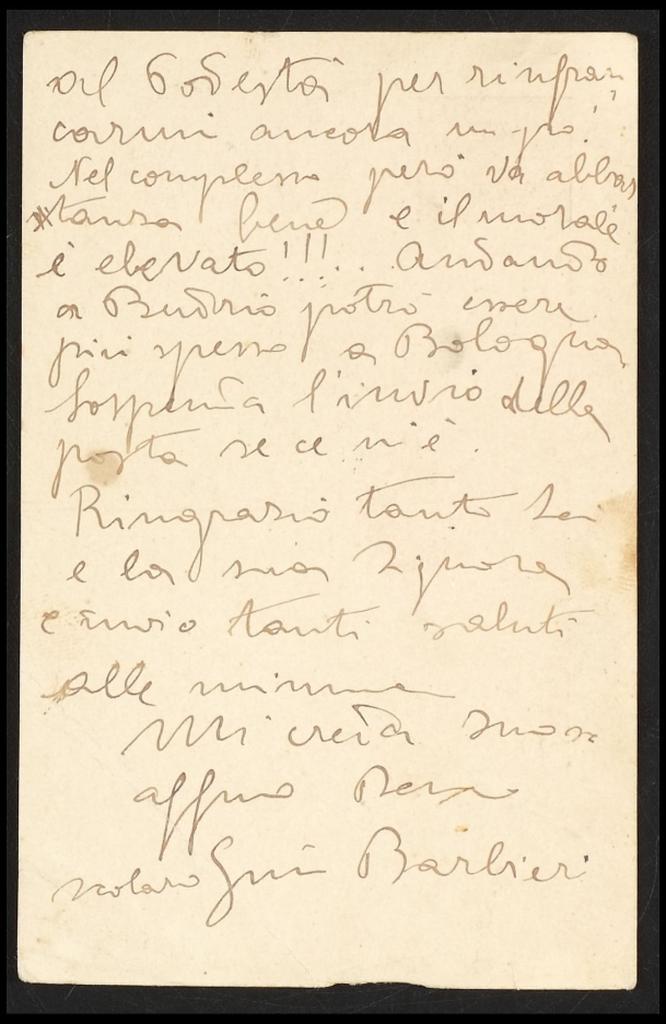 al Podestà per rinfran
carmi ancora un po'!
Nel complesso però va abbas
tanza bene e il morale
è elevato!!!... Andando
a Budrio potrò essere
più spesso a Bologna
Sospenda l'invio della
posta se ce n'è.
Ringrazio tanto Lei
e la sua Signora
e invio tanti saluti
alle
Mi creda suo
affmo
scolaro Barbieri